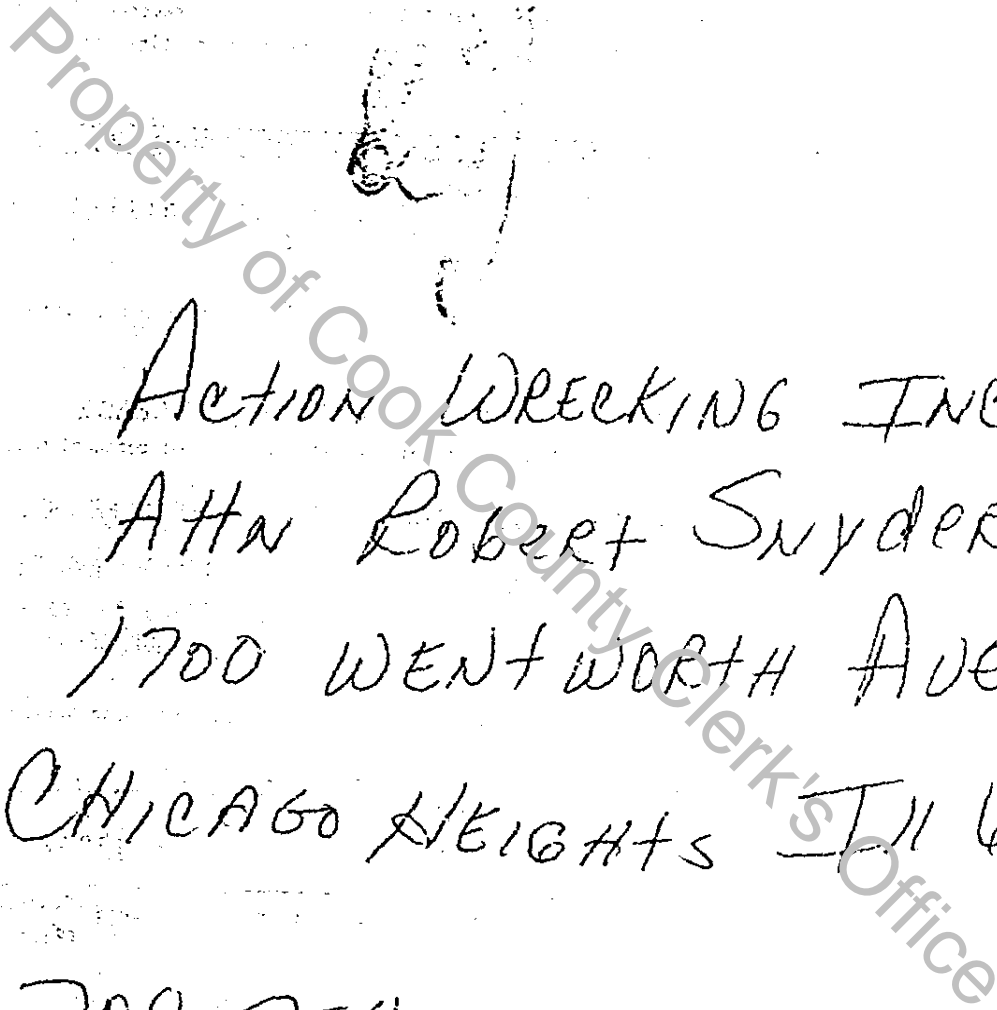 Property of Cook County Clerk's Office
Action Wrecking Inc
Attn Robert Snyder
1700 Wentworth Ave
Chicago Heights Ill 6